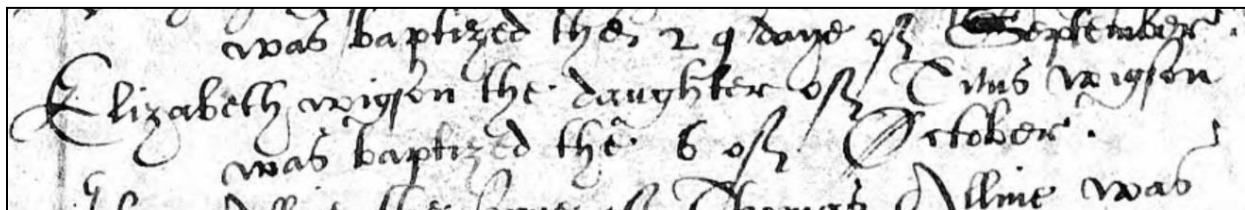 was baptized the 29 daye of September.
Elizabeth wigson the daughter of Titus wigson
was baptized the 6 of October.
the of Thomas Alline was